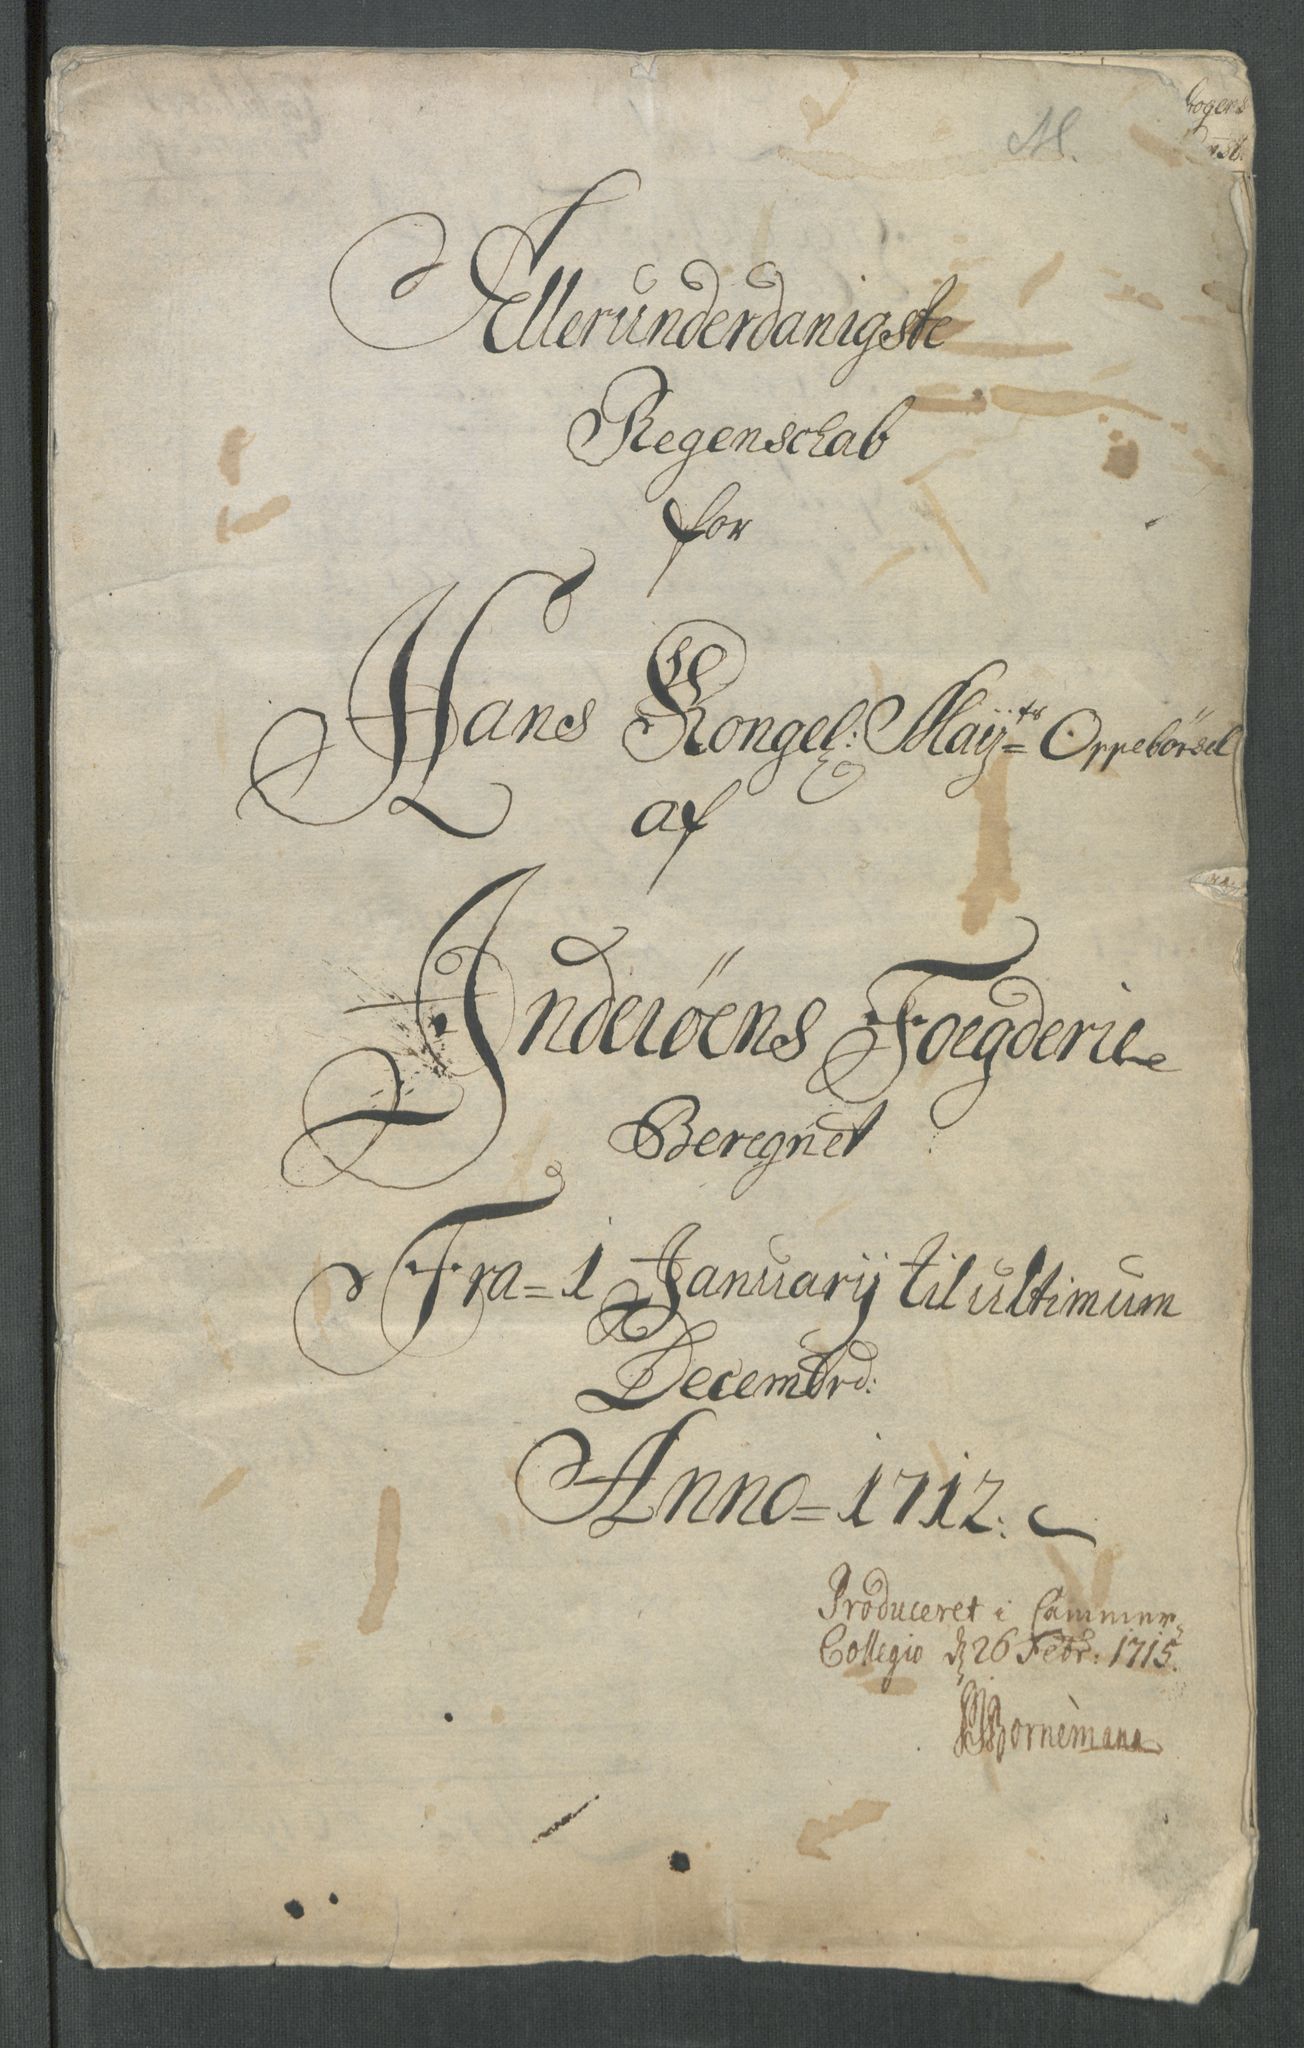 M.
Allerunderdanigste
Regenschab
for
Hans Kongel: Maÿ=ts Oppebörsel
af
Inderöens Foegderie
Beregnet
Fra=1 Januarÿ til ultimum
Decembrd:
Anno=1712:
Produceret i Cammer-
Collegio d 26 Febr: 1715.
Bornemann